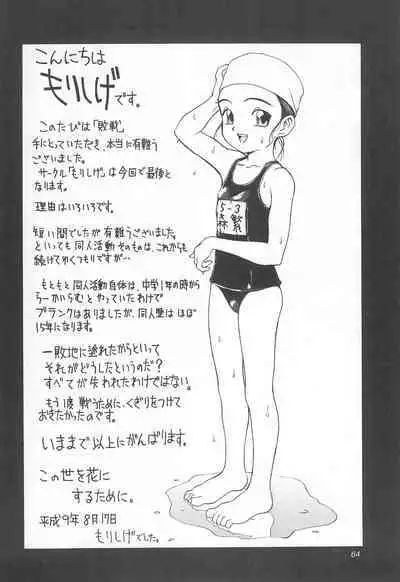 こんにちは
もりしげです。
このたびは「敗戦」
手にとっていただき、本当に有難う
ございました。
サークル「もりしげ」は今回で最後と
なります。
理由はいろいろです。
短い間でしたが有難うございました。
といっても同人活動そのものは、これからも
続けてゆくつもりですが…
もともと同人活動自体は、中学1年の時から
らーかいらむとやっていたわけで
ブランクはありましたが、同人歴はほぼ
15年になります。
一敗地に塗れたからといって
それがどうしたというのだ?
すべてが失われたわけではない。
もう一度戦うために、くぎりをつけて
おきたかったのです。
いままで以上にがんばります。
この世を花に
するために。
平成9年8月17日
もりしげでした。
5-3
森繁
64